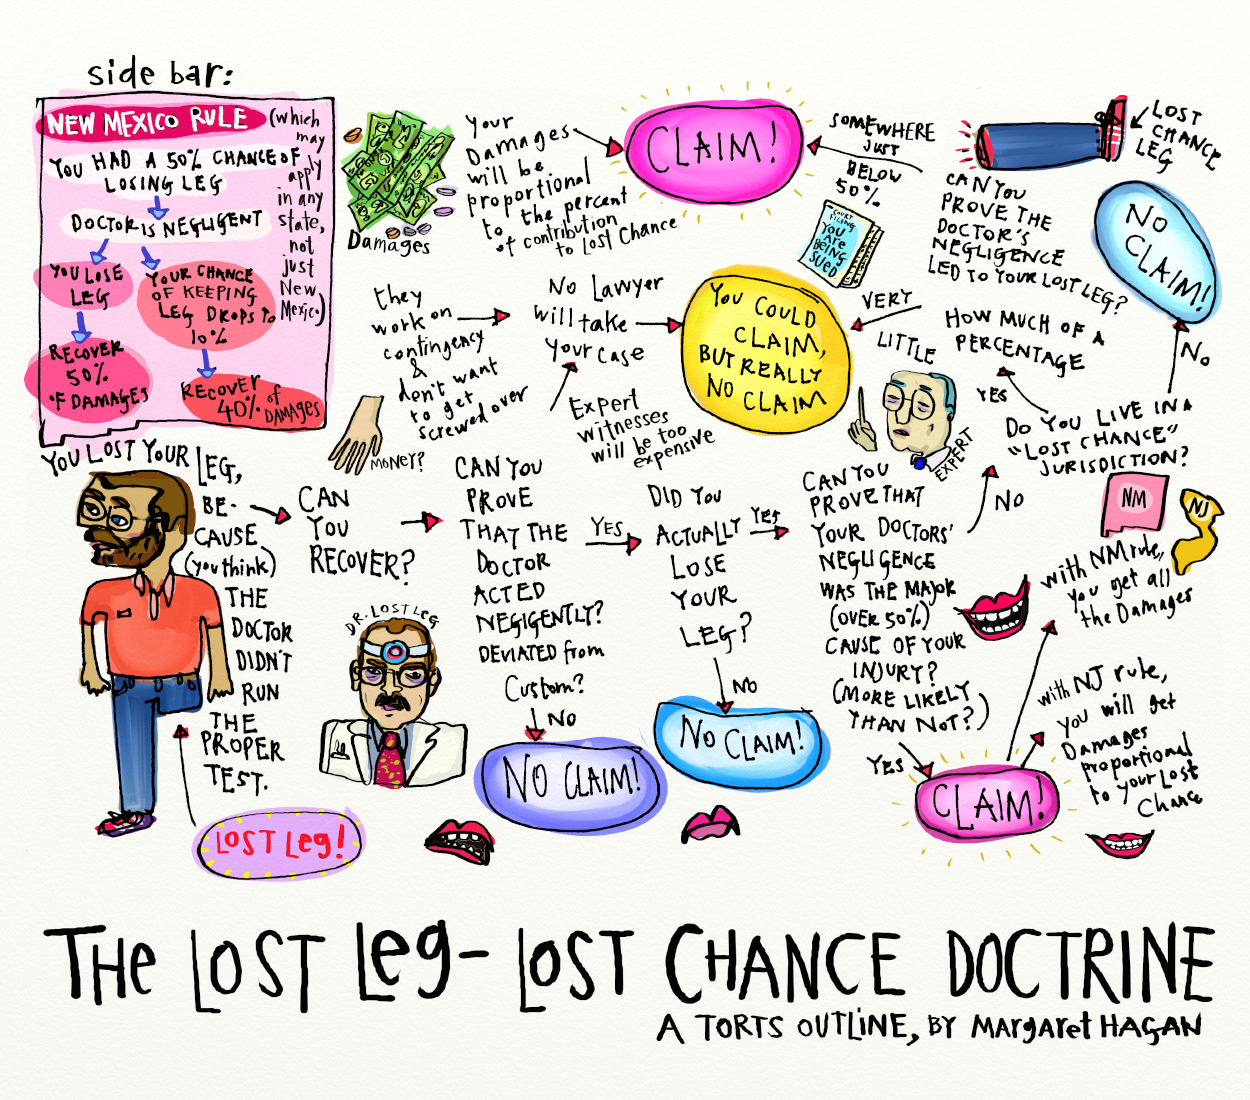 side bar:
NEW MEXICO RULE
(which
may
apply
in any
state,
not
just
New
Mexico)
YOU HAD A 50% CHANCE OF
LOSING LEG
DOCTOR IS NEGLIGENT
YOU LOSE
LEG
RECOVER
50%
OF DAMAGES
YOUR CHANCE
OF KEEPING
LEG DROPS to
10%
RECOVER
40% of
DAMAGES
Damages
Your
Damages
will be
proportional
to the percent
of contribution
to Lost Chance
CLAIM!
SOMEWHERE
JUST
BELOW
50%
COURT
FILING
YOU
ARE
BEING
SUED
LOST
CHANCE
LEG
CAN YOU
PROVE THE
DOCTOR'S
NEGLIGENCE
LED TO YOUR LOST LEG?
NO
CLAIM!
they
work on
contingency
&
don't want
to get
screwed over
MONEY?
No Lawyer
will take
your case
Expert
witnesses
will be too
expensive
YOU COULD
CLAIM,
BUT REALLY
NO CLAIM
VERY
LITTLE
HOW MUCH OF A
PERCENTAGE
YES
No
DO YOU LIVE IN A
"LOST CHANCE"
JURISDICTION?
EXPERT
NM
NJ
YOU LOST YOUR LEG,
BE-
CAUSE
(you think)
THE
DOCTOR
DIDN'T
RUN
THE
PROPER
TEST.
LOST Leg!
CAN
YOU
RECOVER?
DR. LOST Leg
CAN YOU
PROVE
THAT THE
DOCTOR
ACTED
NEGIGENTLY?
DEVIATED from
Custom?
NO
NO CLAIM!
YES
DID YOU
ACTUALLY
LOSE
YOUR
LEG?
NO
NO CLAIM!
YES
CAN YOU
PROVE THAT
YOUR DOCTORS'
NEGLIGENCE
WAS THE MAJOR
(OVER 50%)
CAUSE OF YOUR
INJURY?
(MORE LIKELY
THAN NOT?)
NO
YES
CLAIM!
with NM rule,
you get all
the Damages
with NJ rule,
you will get
Damages
proportional
to your Lost
Chance
THe LOST Leg- LOST CHANCE DOCTRINE
A TORTS OUTLINE, BY MARgaret HAGAN